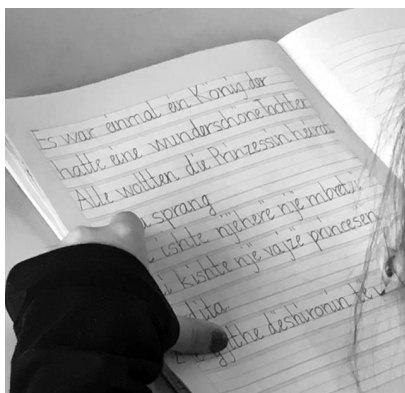 Es war einmal ein König der
hatte eine wunderschöne Tochter
Alle wollten die Prinzessin heirat
sprang
ishte njëherë një mbret
kishte një vajzë princesën
dita
gjithe dëshironin të